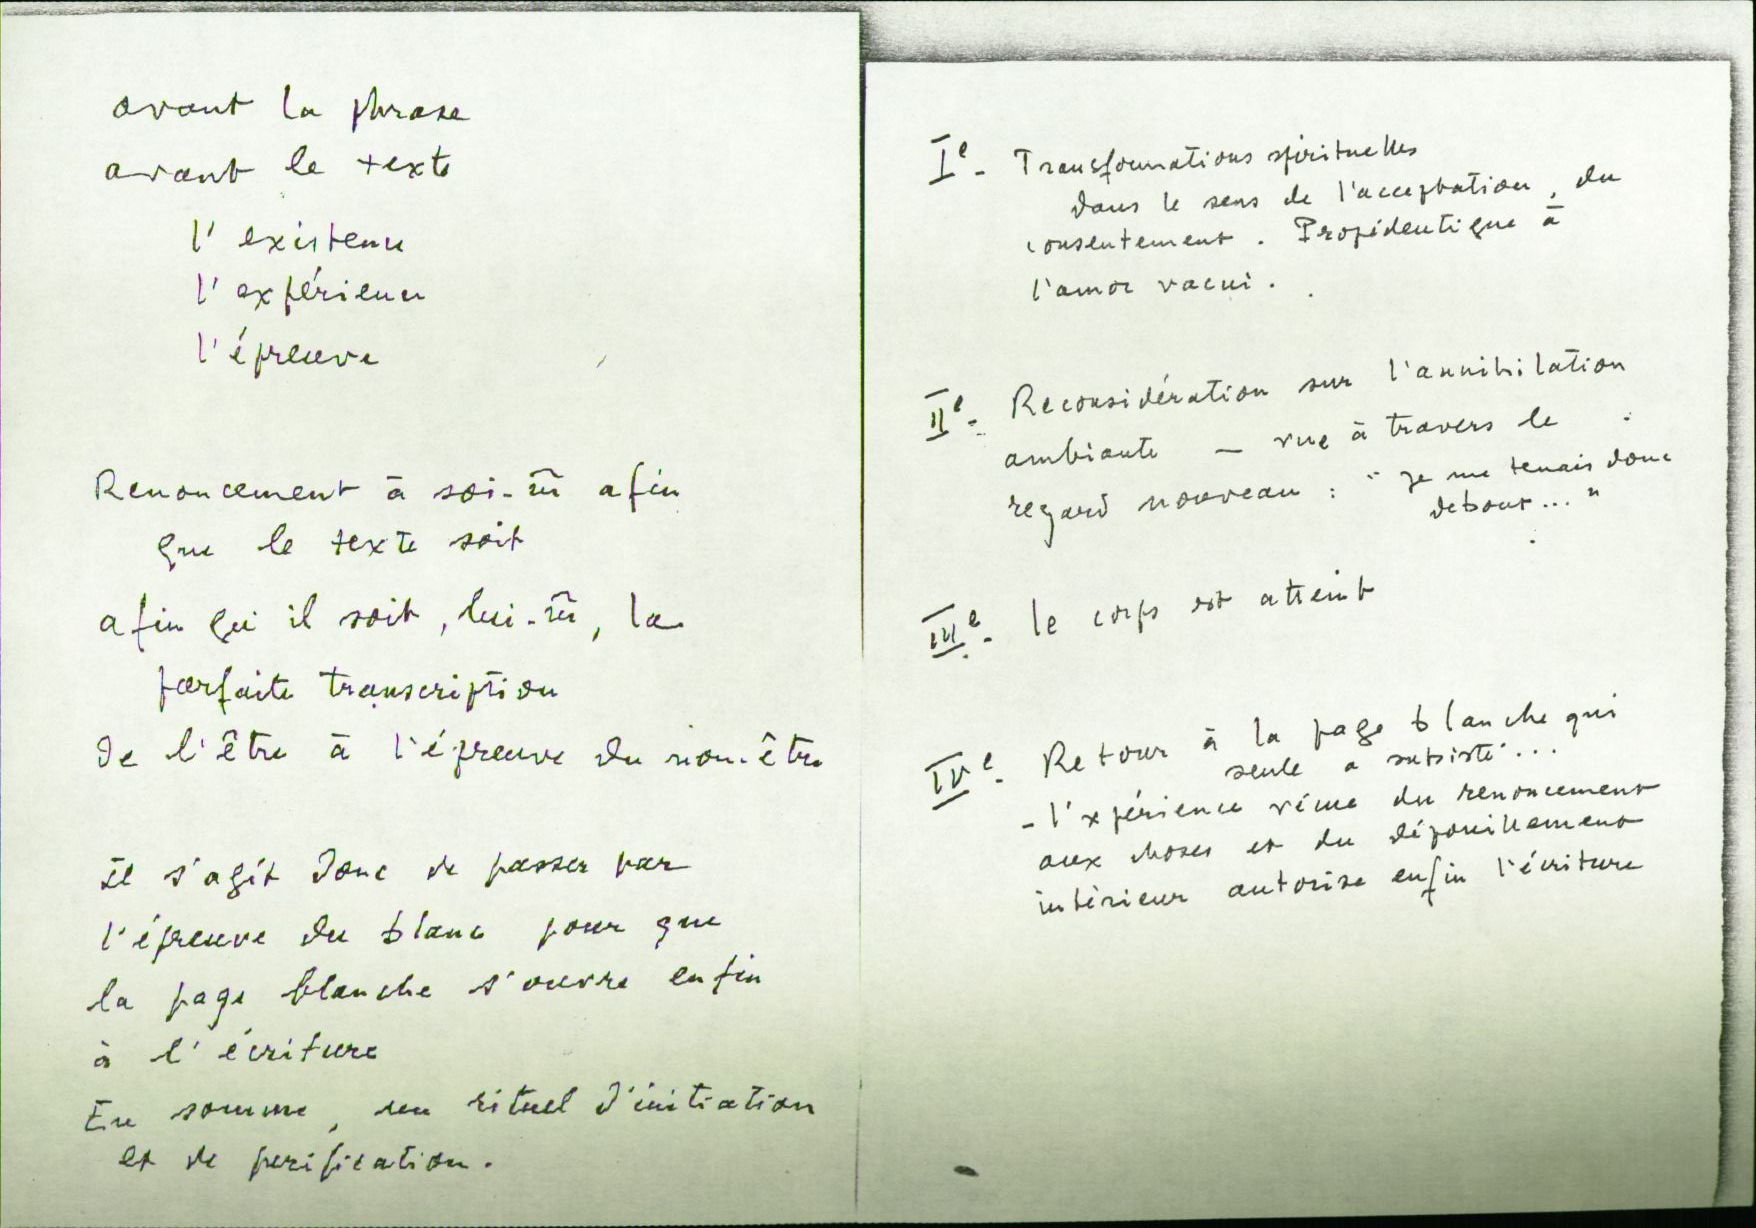 avant la phrase
avant le texte
l'existence
l'expérience
l'épreuve
Renoncement à soi-m̄ afin
que le texte soit
afin qu'il soit, lui-m̄, la
parfaite transcription
de l'être à l'épreuve du non-être
Il s'agit donc de passer par
l'épreuve du blanc pour que
la page blanche s'ouvre enfin
à l'écriture
En somme, un rituel d'initiation
et de purification.
Ie - Transformations spirituelles
dans le sens de l'acceptation, du
consentement. Propédeutique à
l'amor vacui.
IIe - Reconsidération sur l'annihilation
ambiante – vue à travers le
regard nouveau : "je me tenais donc
debout..."
IIIe - le corps est atteint
IVe - Retour à la page blanche qui
seule a subsisté...
- l'expérience vécue du renoncement
aux choses et du dépouillement
intérieur autorise enfin l'écriture